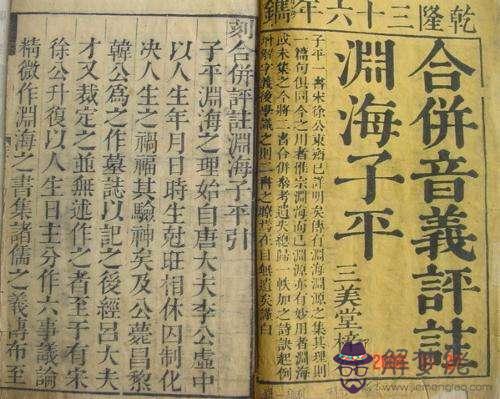 乾隆三十六年鐫
合併音義評註
淵海子平
三美堂梓
子平一書宋徐公東齋已詳明矣傳有淵海淵源之集其理則
一篇句俱同今之用者惟宗淵海而已淵源亦有妙用者淵海
或未集之今將二書合併參考遺失總歸一帙加之詩訣起例
字義後學識之則一書之 在目無遺矣謹白
刻合併評註淵海子平引
子平淵海之理始自唐大夫李公虛中
以人生年月日時生尅旺相休囚制化
決人生之禍福其驗神矣及公薨昌黎
韓公為之作墓誌以記之後經呂大夫
才又裁定之並無述作之者至于有宋
徐公升復以人生日主分作六事議論
精微作淵海之書集諸儒之義傳布至
解梦佬
www.jiemengleo.com